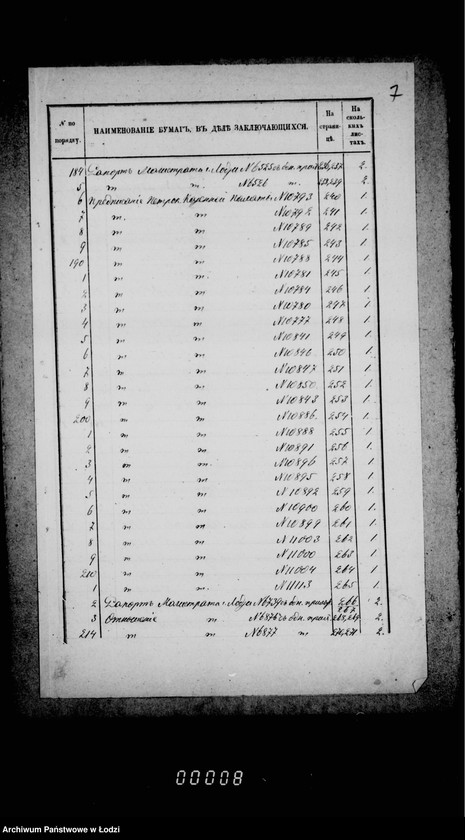 7
№ по порядку.
НАИМЕНОВАНІЕ БУМАГЪ, ВЪ ДѢЛѢ ЗАКЛЮЧАЮЩИХСЯ.
На страницѣ.
На сколькихъ листахъ.
184 Рапортъ Магистрата г. Лодзи №6525 съ 2.
5 " " №6526 " 238,239 2.
6 Предписаніе Петрок. Казенной Палаты №10793 240 1.
7 " " №10792 241 1.
8 " " №10789 242 1.
9 " " №10785 243 1.
190 " " №10788 244 1.
1 " " №10781 245 1.
2 " " №10784 246 1.
3 " " №10780 247 1.
4 " " №10777 248 1.
5 " " №10841 249 1.
6 " " №10846 250 1.
7 " " №10847 251 1.
8 " " №10850 252 1.
9 " " №10843 253 1.
200 " " №10886 254 1.
1 " " №10888 255 1.
2 " " №10891 256 1.
3 " " №10896 257 1.
4 " " №10895 258 1.
5 " " №10892 259 1.
6 " " №10900 260 1.
7 " " №10899 261 1.
8 " " №11003 262 1.
9 " " №11000 263 1.
210 " " №11004 264 1.
1 " " №11113 265 1.
2 Рапортъ Магистрата г. Лодзи 266 267 2.
3 Отношеніе " №6876 съ 268,269 2.
214 " " №6877 " 270,271 2.
00008
Archiwum Państwowe w Łodzi